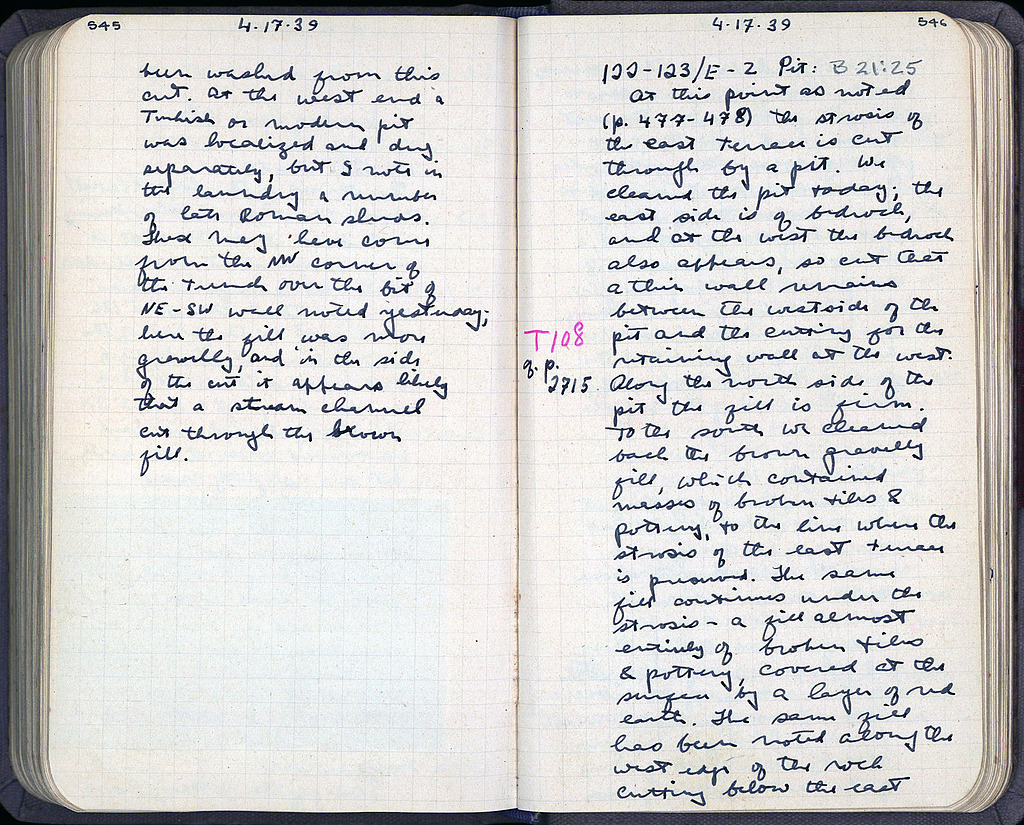 545
4.17.39
been washed from this
cut. At the west end a
Turkish or modern pit
was localized and dug
separately, but I note in
the laundry a number
of late Roman sherds.
These may have come
from the NW corner of
the trench over the bit of
NE-SW wall noted yesterday;
here the fill was more
gravelly, and in the side
of the cut it appears likely
that a stream channel
cut through the brown
fill.
4.17.39
546
122-123/E-2 Pit: B 21:25
At this point as noted
(p. 477-478) the strosis of
the east terrace is cut
through by a pit. We
cleared the pit today; the
east side is of bedrock,
and at the west the bedrock
also appears, so cut that
a thin wall remains
between the westside of the
pit and the cutting for the
retaining wall at the west.
Along the north side of the
pit the fill is firm.
To the south we cleaned
back the brown gravelly
fill, which contained
masses of broken tiles &
pottery, to the line where the
strosis of the east terrace
is preserved. The same
fill continues under the
strosis - a fill almost
entirely of broken tiles
& pottery, covered at the
surface by a layer of red
earth. The same fill
has been noted along the
west edge of the rock
cutting below the east
T108
p.
2715